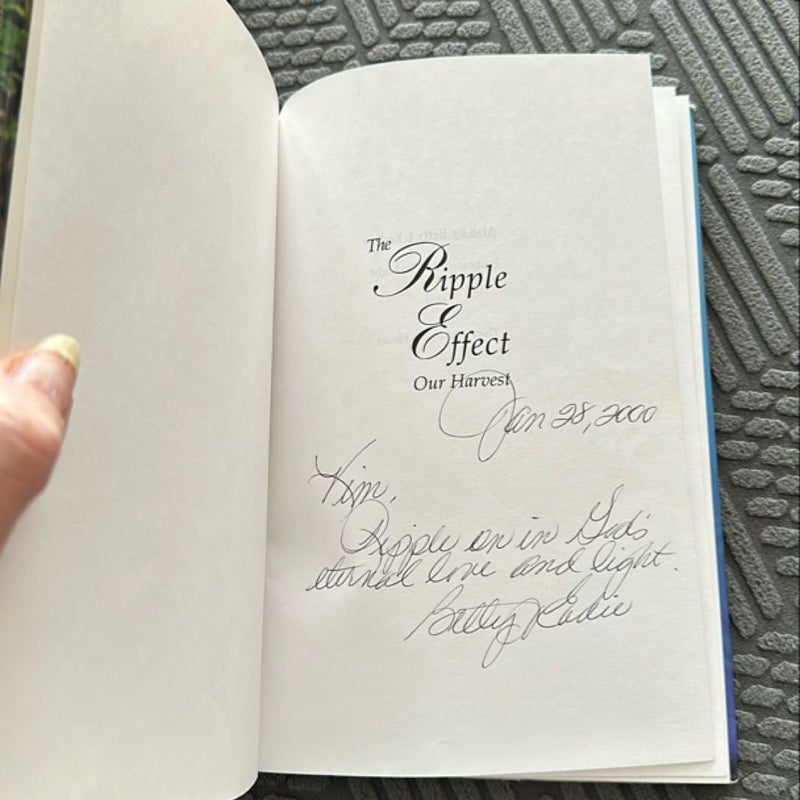 The
Ripple
Effect
Our Harvest
Jan 28, 2000
Kim,
Ripple on in God's
eternal love and light.
Betty J Eadie